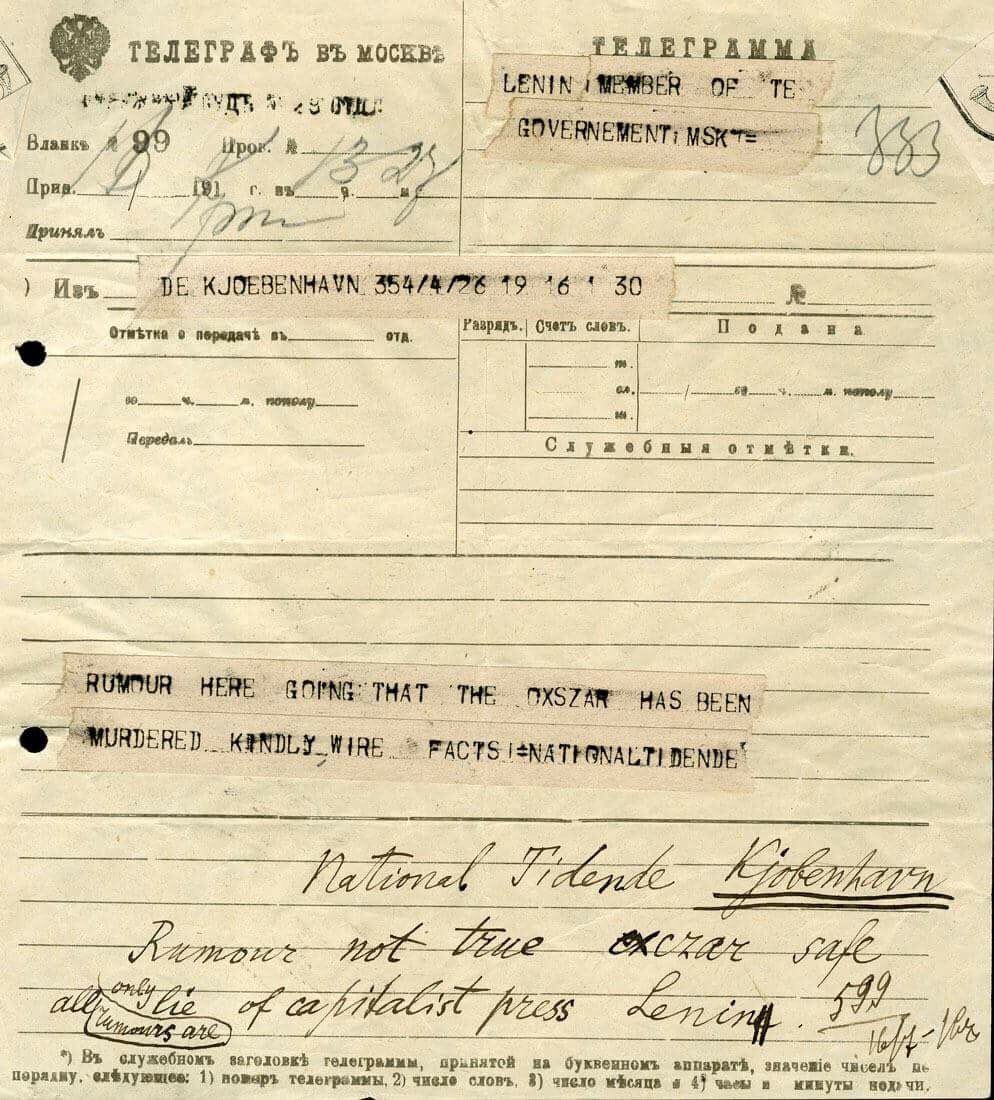 ТЕЛЕГРАФЪ ВЪ МОСКВѢ
Бланкъ № 99 Пров. №
Прин. 191 г. въ 13 ч. 27 м.
Принялъ
ТЕЛЕГРАММА
LENIN MEMBER OF TE
GOVERNEMENT MSK =
333
Изъ DE KJOEBENHAVN 354/4/26 19 16 1 30
№
Отмѣтка о передачѣ въ отд.
го ч. м. пополу
Передалъ
Разрядъ. Счетъ словъ. Подана
сл. го ч. м. пополу
Служебныя отмѣтки.
RUMOUR HERE GOING THAT THE OXSZAR HAS BEEN
MURDERED KINDLY WIRE FACTS = NATIONALTIDENDE
National Tidende Kjobenhavn
Rumour not true exczar safe
all rumours are only lie of capitalist press Lenin.
599
16/7
*) Въ служебномъ заголовкѣ телеграммы, принятой на буквенномъ аппаратѣ, значеніе чиселъ по
порядку, слѣдующее: 1) номеръ телеграммы, 2) число словъ, 3) число мѣсяца и 4) часы и минуты подачи.